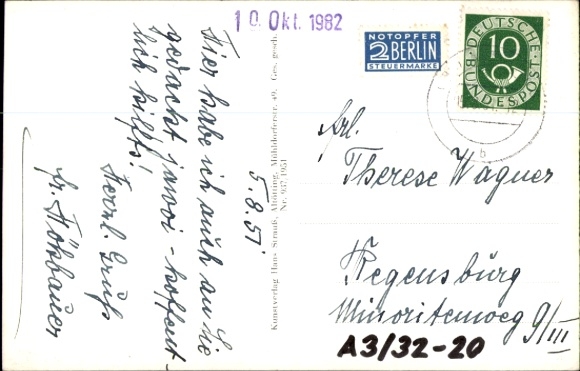 10. Okt. 1982
NOTOPFER
2 BERLIN
STEUERMARKE
DEUTSCHE
BUNDESPOST
10
b
Hier habe ich auch an Sie
gedacht
hoffent-
lich hilft's!
Herzl. Gruß
5.8.51
Kunstverlag Hans Strauß, Altötting, Mühldorferstr. 49. Ges. gesch.
Nr. 937/1951
Frl.
Therese Wagner
Regensburg
Minoritenweg 9/III
A3/32-20